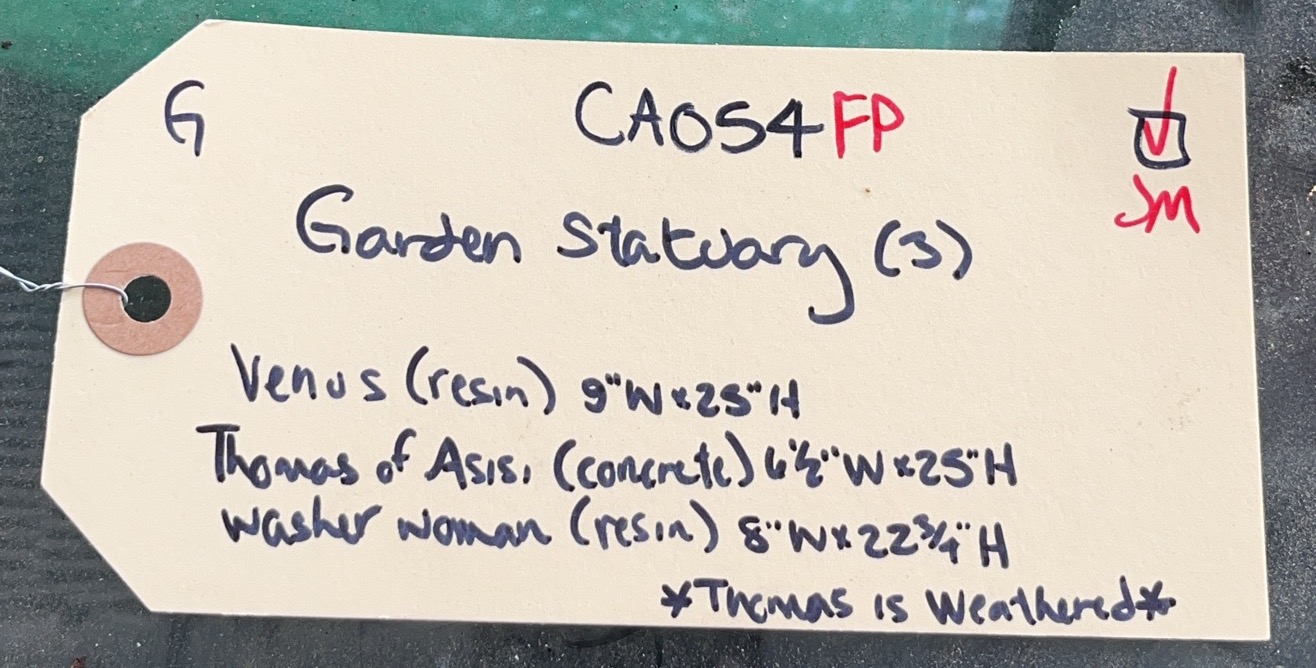 G
CA054FP
JM
Garden Statuary (3)
Venus (resin) 9"W x 25"H
Thomas of Asisi (concrete) 6½"W x 25"H
Washer Woman (resin) 8"W x 22¾"H
*Thomas is Weathered*